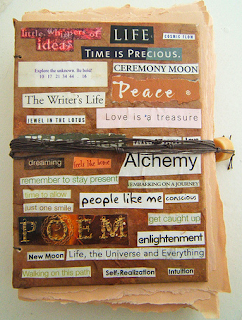 little whispers of
ideas
LIFE
COSMIC FLOW
TIME IS PRECIOUS.
Explore the unknown. Be bold!
CEREMONY MOON
The Writer's Life
Peace
JEWEL IN THE LOTUS
Love is a treasure
dreaming
feels like love
Alchemy
remember to stay present
EMBARKING ON A JOURNEY
time to allow
people like me
conscious
just one smile
get caught up
POEM
enlightenment
New Moon
Life, the Universe and Everything
Walking on this path
Self-Realization
Intuition